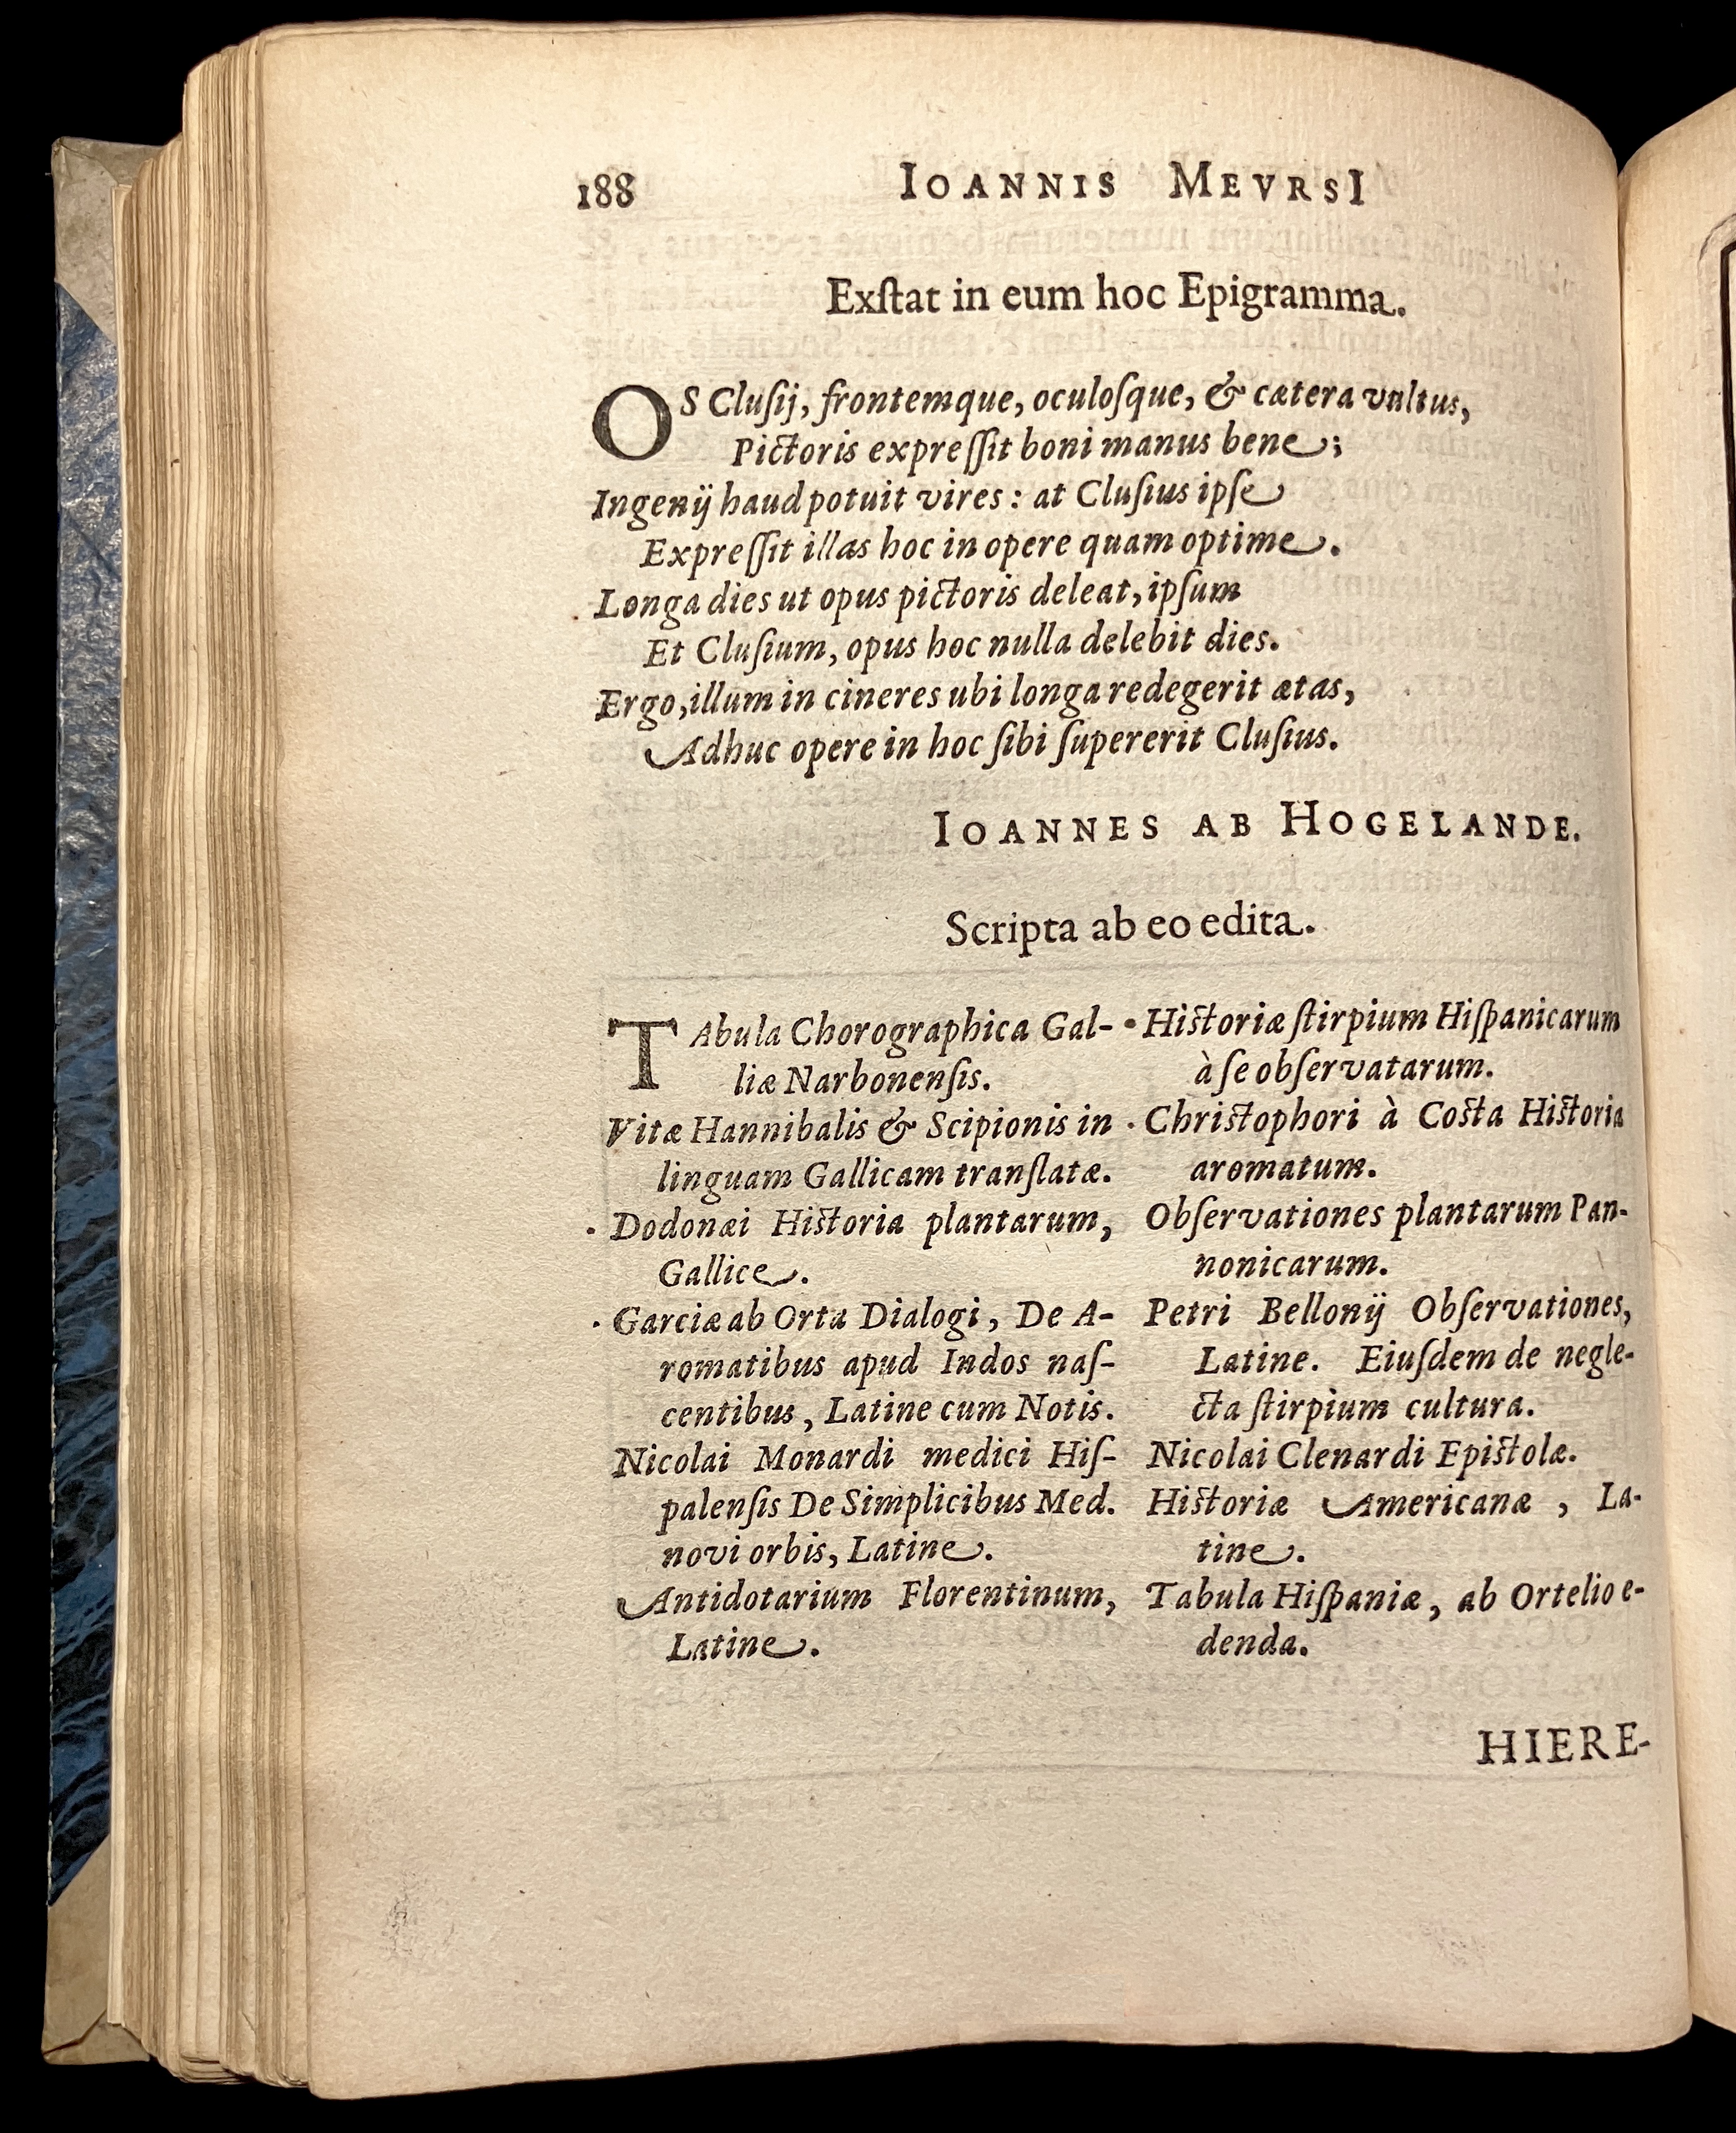 188 IOANNIS MEVRSI
Exſtat in eum hoc Epigramma.
OS Cluſij, frontemque, oculoſque, & cætera vultus,
Pictoris expreſſit boni manus bene;
Ingenij haud potuit vires: at Cluſius ipſe
Expreſſit illas hoc in opere quam optime.
Longa dies ut opus pictoris deleat, ipſum
Et Cluſium, opus hoc nulla delebit dies.
Ergo, illum in cineres ubi longa redegerit ætas,
Adhuc opere in hoc ſibi ſupererit Cluſius.
IOANNES AB HOGELANDE.
Scripta ab eo edita.
TAbula Chorographica Gal-
liæ Narbonenſis.
Vitæ Hannibalis & Scipionis in
linguam Gallicam tranſlatæ.
Dodonæi Hiſtoria plantarum,
Gallice.
Garciæ ab Orta Dialogi, De A-
romatibus apud Indos naſ-
centibus, Latine cum Notis.
Nicolai Monardi medici Hiſ-
palenſis De Simplicibus Med.
novi orbis, Latine.
Antidotarium Florentinum,
Latine.
Hiſtoriæ ſtirpium Hiſpanicarum
à ſe obſervatarum.
Chriſtophori à Coſta Hiſtoria
aromatum.
Obſervationes plantarum Pan-
nonicarum.
Petri Bellonij Obſervationes,
Latine. Eiuſdem de negle-
cta ſtirpium cultura.
Nicolai Clenardi Epiſtolæ.
Hiſtoriæ Americanæ, La-
tine.
Tabula Hiſpaniæ, ab Ortelio e-
denda.
HIERE-